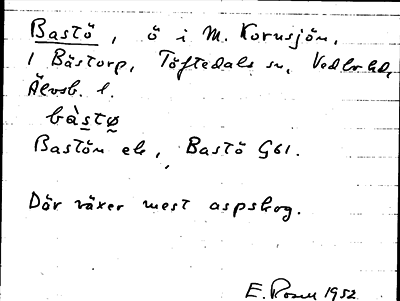 Bastö, ö i M. Kornsjön,
i Båstorp, Töftedals sn, Vedbo hd,
Älvsb. l.
bàstø
Bastön ek, Bastö G61.
Där växer mest aspskog.
E. Rosell 1952